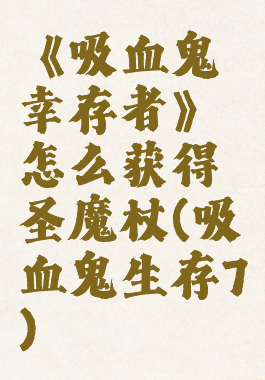 《吸血鬼
幸存者》
怎么获得
圣魔杖(吸
血鬼生存7
)